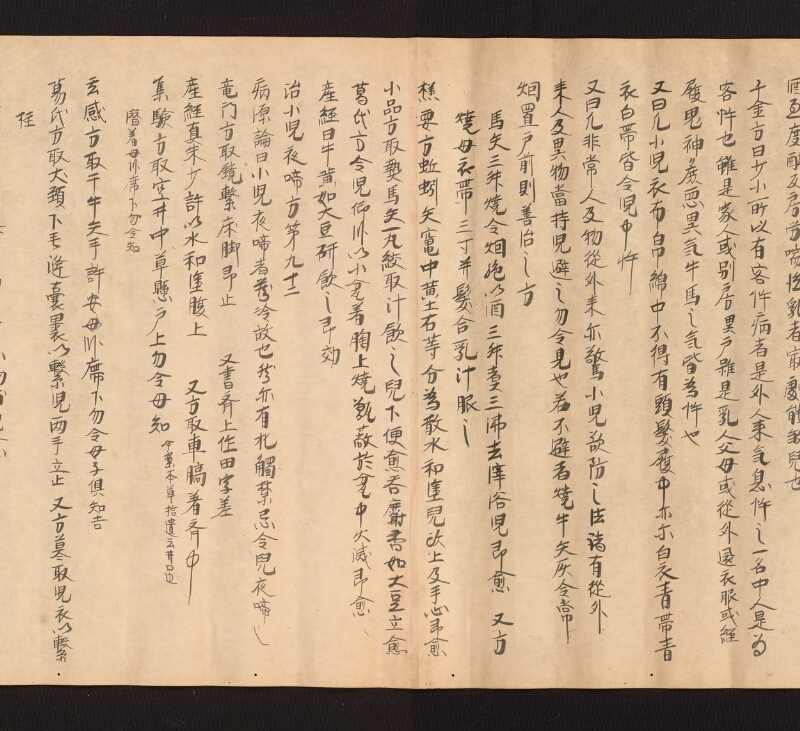 千金方曰少小所以有客忤病者是外人来气息忤之一名中人是為
客忤也雖是家人或別房異戸雖是乳人父母或從外還衣服或經
履鬼神麁悪異気牛馬之気皆為忤也
又曰凡小児衣布帛綿中不得有頭髪履中亦尓白衣青帯青
衣白帯皆令児中忤
又曰凡非常人及物從外来亦驚小児欲防之法諸有從外
来人及異物當持児避之勿令見也若不避者焼牛矢灰令常
烟置戸前則善治之方
馬矢三升焼令烟絶以酒三升煑三沸去滓浴児即愈 又方
焼母衣帯三寸并髪合乳汁服之
集要方蚯蚓矢竃中黄土石等分為散水和塗児頭上及手心即愈
小品方取熱馬矢一丸絞取汁飲之児下便愈 呑麝香如大豆立愈
葛氏方令児仰卧以小盆着胸上焼甑蔽於盆中火滅即愈
産經曰牛黄如大豆研飲之即効
治小児夜啼方第九十二
病源論曰小児夜啼者蔵冷故也 亦有犯觸禁忌令児夜啼
竜门方取鏡繫床脚即止 又書斉上作田字差
産經真朱少許以水和塗腹上 又方取車膏着斉中
集験方取空井中草懸戸上勿令母知 今案本草拾遺云井口邊
草着母卧席下勿令知
玄感方取干牛矢手許安母卧席下勿令母子倶知吉
葛氏方取犬頚下毛絳囊裹以繫児両手立止 又方暮取児衣以繫
柱